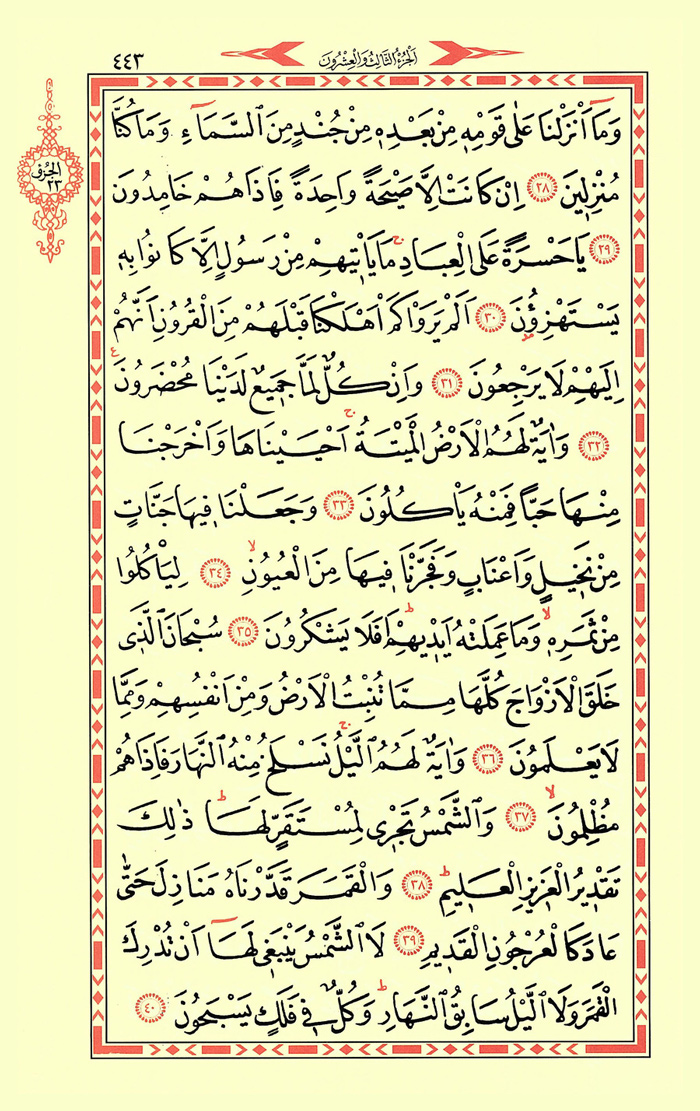 الجزء الثالث والعشرون
٤٤٣
الجزؤ
٢٣
وَمَٓا اَنْزَلْنَا عَلٰى قَوْمِه۪ مِنْ بَعْدِه۪ مِنْ جُنْدٍ مِنَ السَّمَٓاءِ وَمَا كُنَّا
مُنْزِل۪ينَ ٢٨ اِنْ كَانَتْ اِلَّا صَيْحَةً وَاحِدَةً فَاِذَا هُمْ خَامِدُونَ
٢٩ يَا حَسْرَةً عَلَى الْعِبَادِۚ مَا يَأْت۪يهِمْ مِنْ رَسُولٍ اِلَّا كَانُوا بِه۪
يَسْتَهْزِؤُ۫نَ ٣٠ اَلَمْ يَرَوْا كَمْ اَهْلَكْنَا قَبْلَهُمْ مِنَ الْقُرُونِ اَنَّهُمْ
اِلَيْهِمْ لَا يَرْجِعُونَ ٣١ وَاِنْ كُلٌّ لَمَّا جَم۪يعٌ لَدَيْنَا مُحْضَرُونَ۟
٣٢ وَاٰيَةٌ لَهُمُ الْاَرْضُ الْمَيْتَةُۚ اَحْيَيْنَاهَا وَاَخْرَجْنَا
مِنْهَا حَبًّا فَمِنْهُ يَأْكُلُونَ ٣٣ وَجَعَلْنَا ف۪يهَا جَنَّاتٍ
مِنْ نَخ۪يلٍ وَاَعْنَابٍ وَفَجَّرْنَا ف۪يهَا مِنَ الْعُيُونِۙ ٣٤ لِيَأْكُلُوا
مِنْ ثَمَرِه۪ۙ وَمَا عَمِلَتْهُ اَيْد۪يهِمْۜ اَفَلَا يَشْكُرُونَ ٣٥ سُبْحَانَ الَّذ۪ى
خَلَقَ الْاَزْوَاجَ كُلَّهَا مِمَّا تُنْبِتُ الْاَرْضُ وَمِنْ اَنْفُسِهِمْ وَمِمَّا
لَا يَعْلَمُونَ ٣٦ وَاٰيَةٌ لَهُمُ الَّيْلُۚ نَسْلَخُ مِنْهُ النَّهَارَ فَاِذَا هُمْ
مُظْلِمُونَۙ ٣٧ وَالشَّمْسُ تَجْر۪ى لِمُسْتَقَرٍّ لَهَاۜ ذٰلِكَ
تَقْد۪يرُ الْعَز۪يزِ الْعَل۪يمِۜ ٣٨ وَالْقَمَرَ قَدَّرْنَاهُ مَنَازِلَ حَتّٰى
عَادَ كَالْعُرْجُونِ الْقَد۪يمِ ٣٩ لَا الشَّمْسُ يَنْبَغ۪ى لَهَٓا اَنْ تُدْرِكَ
الْقَمَرَ وَلَا الَّيْلُ سَابِقُ النَّهَارِۜ وَكُلٌّ ف۪ى فَلَكٍ يَسْبَحُونَ ٤٠